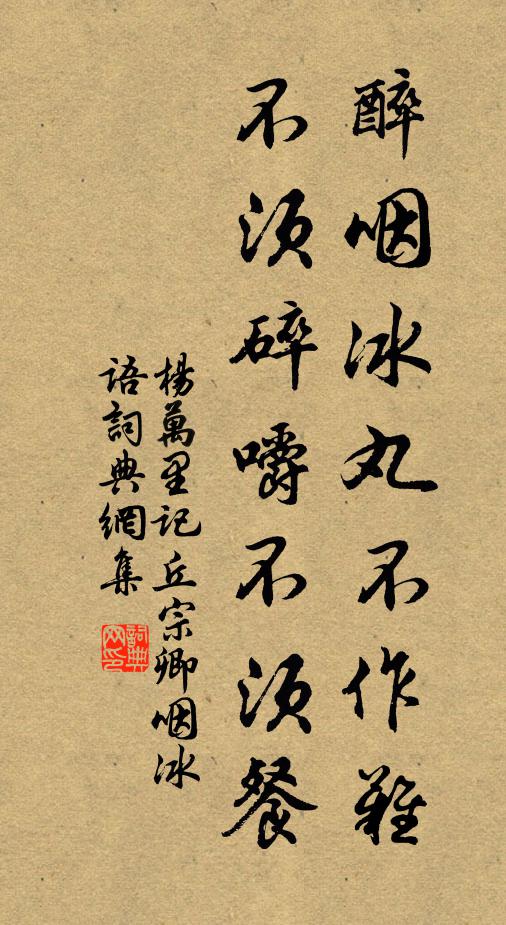 醉咽冰丸不作難
不須碎嚼不須餐
楊萬里記丘宗卿咽冰
语詞典網集
詞典
网印